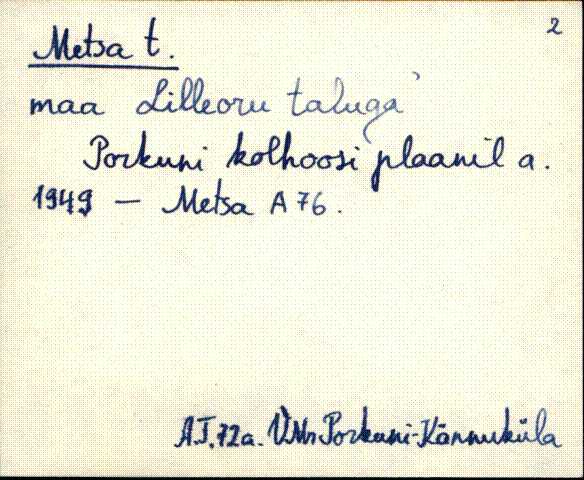 2
Metsa t.
maa Lilleoru taluga
Porkuni kolhoosi plaanil a.
1949 — Metsa A 76.
A.T. 72a. VMr Porkuni-Kännuküla